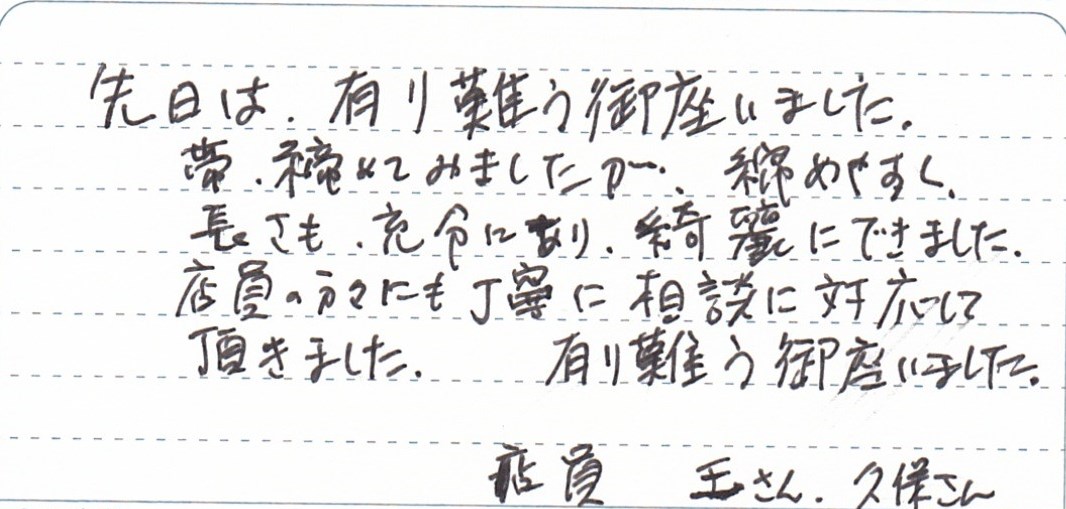 先日は、有り難う御座いました。
帯、締めてみましたが、締めやすく、
長さも、充分にあり、綺麗にできました。
店員の方々にも丁寧に相談に対応して
頂きました。 有り難う御座いました。
店員 王さん、久保さん